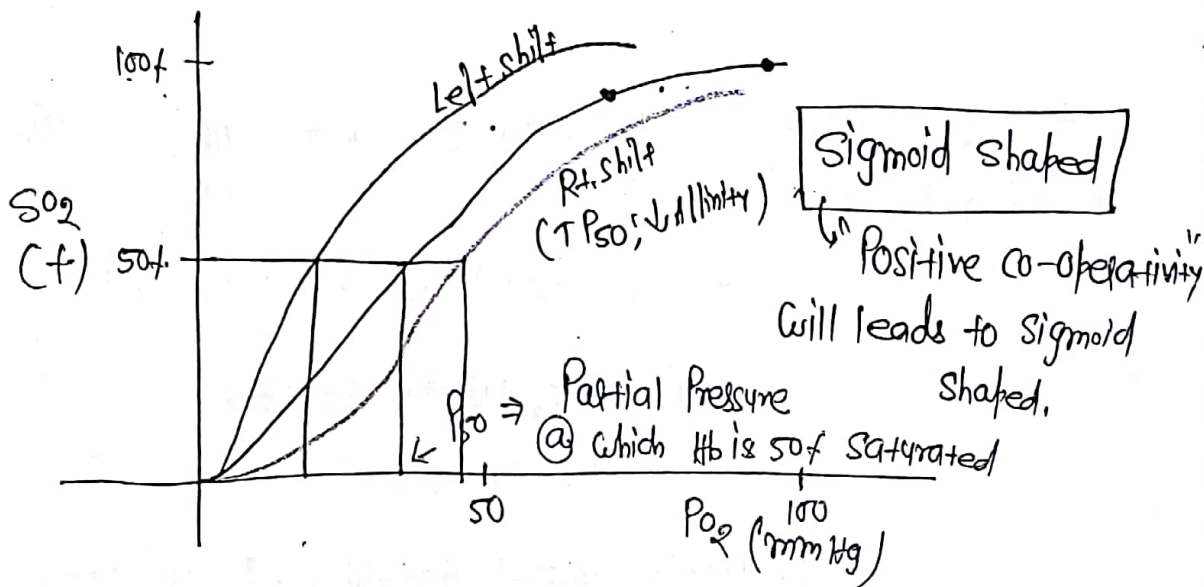 100%
Left shift
SO2
(%)
50%
Rt. shift
(↑P50; ↓ Affinity)
Sigmoid shaped
"Positive co-operativity"
will leads to sigmoid
shaped.
P50 ⇒ Partial Pressure
@ which Hb is 50% saturated
50
100
PO2 (mmHg)